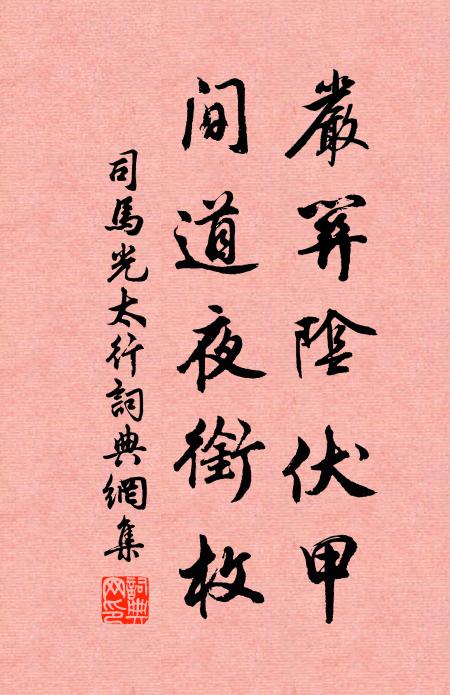 嚴關陰伏甲
間道夜銜枚
司馬光太行詞典網集
詞典网印